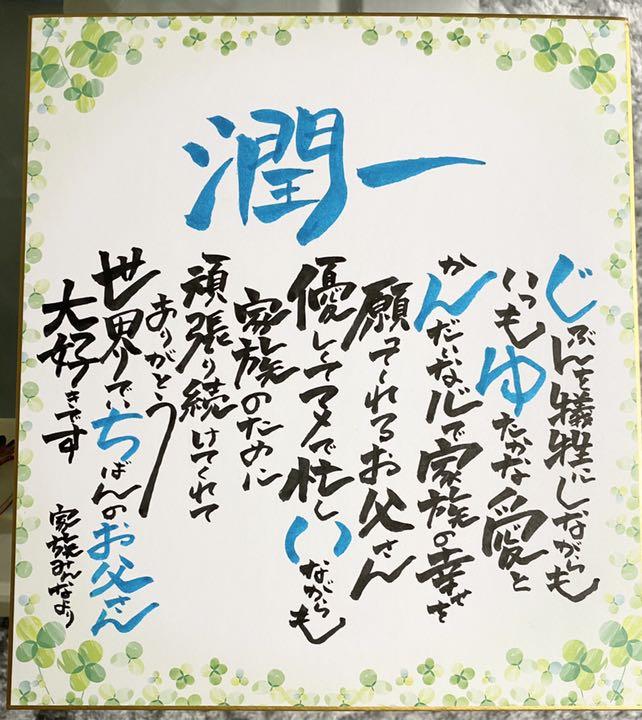 潤一
じぶんを犠牲にしながらも
いつもゆたかな愛と
かんだいな心で家族の幸せを
願ってくれるお父さん
優しくてマメで忙しいながらも
家族のために
頑張り続けてくれて
ありがとう
世界でいちばんのお父さん
大好きです
家族みんなより